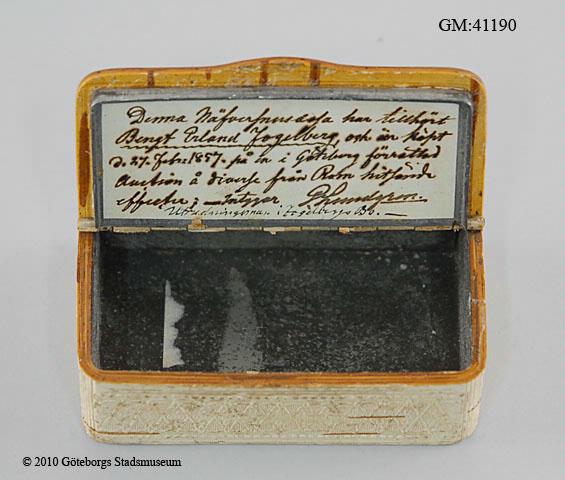 GM:41190
Denna Näfversnusdosa har tillhört
Bengt Erland Fogelberg, och är köpt
d. 27. Febr 1857. på en i Göteborg förrättad
Auction å diverse från Rom hitsände
effecter; intygar
Utredningsman i Fogelbergs Stb.
© 2010 Göteborgs Stadsmuseum